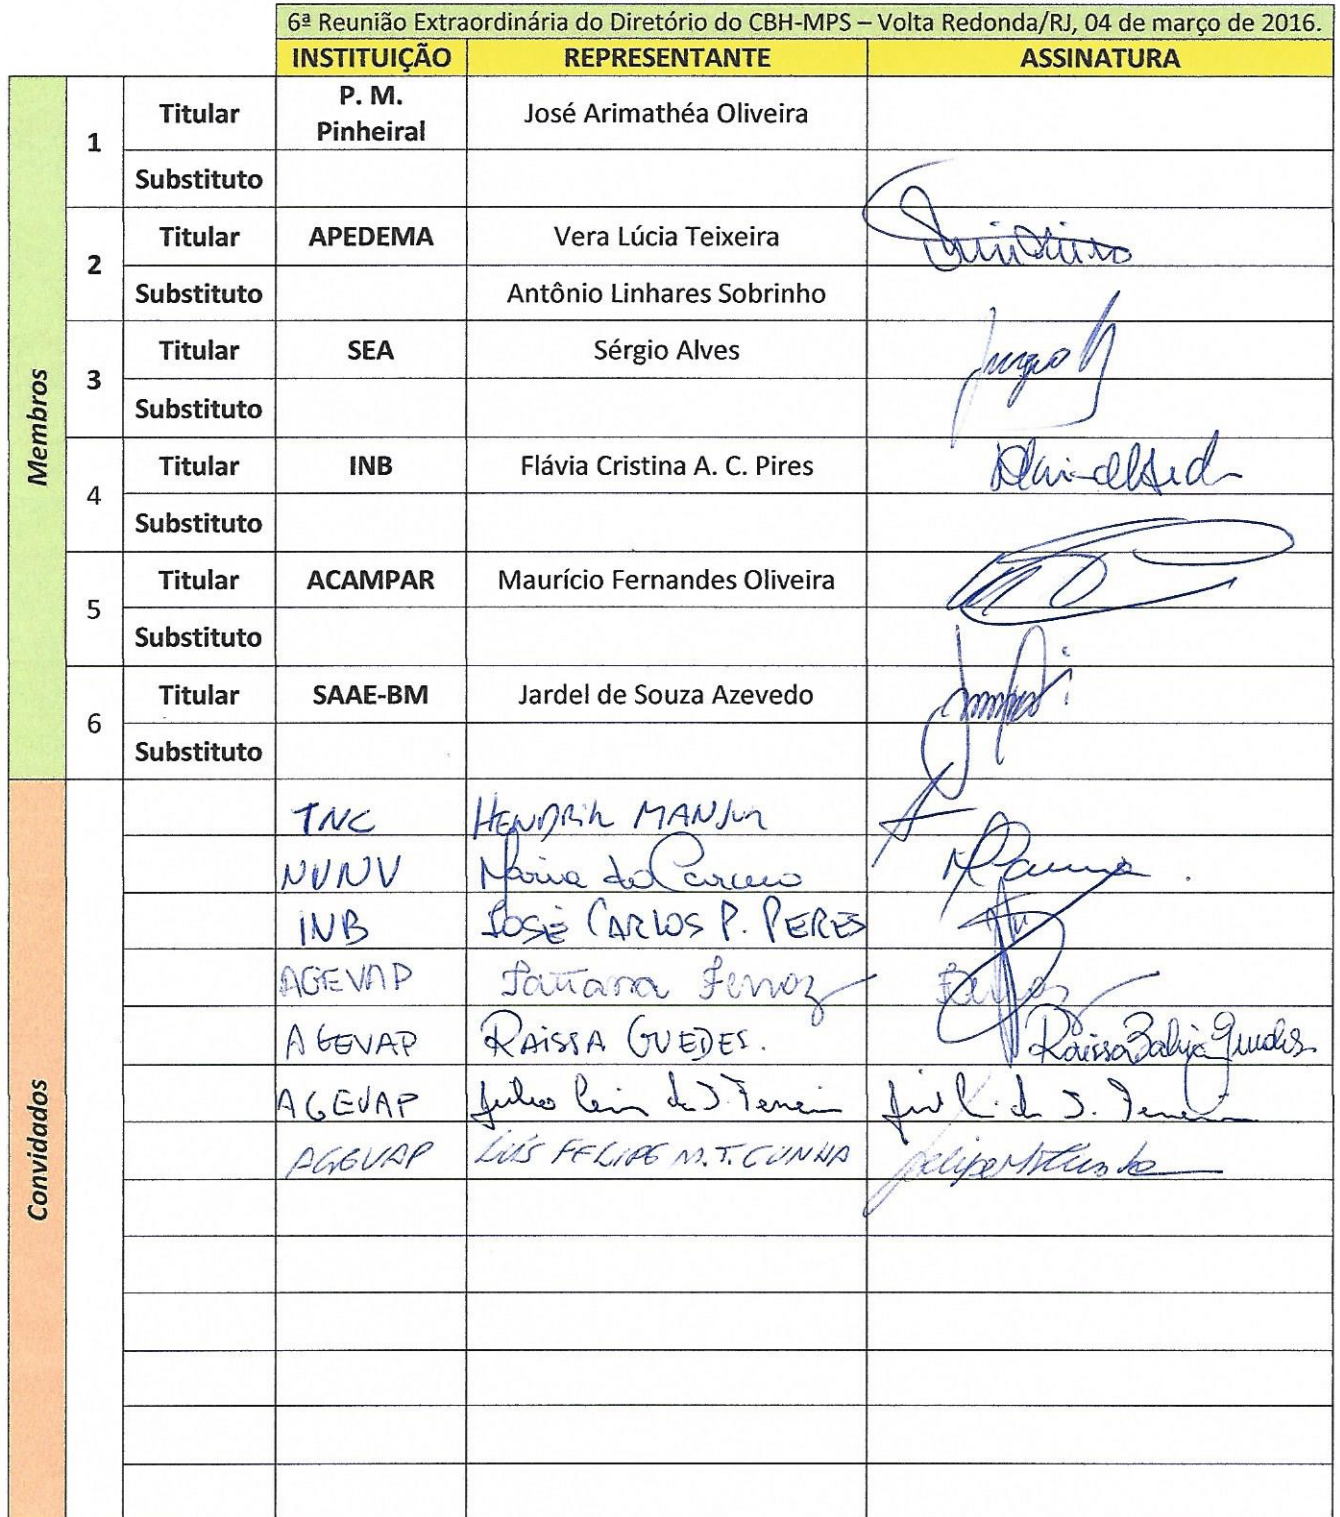 6ª Reunião Extraordinária do Diretório do CBH-MPS – Volta Redonda/RJ, 04 de março de 2016.
INSTITUIÇÃO REPRESENTANTE ASSINATURA
Membros
1 Titular P. M. Pinheiral José Arimathéa Oliveira
Substituto
2 Titular APEDEMA Vera Lúcia Teixeira
Substituto Antônio Linhares Sobrinho
3 Titular SEA Sérgio Alves
Substituto
4 Titular INB Flávia Cristina A. C. Pires
Substituto
5 Titular ACAMPAR Maurício Fernandes Oliveira
Substituto
6 Titular SAAE-BM Jardel de Souza Azevedo
Substituto
Convidados
TNC HENDRIK MANSUR
NVNV Maria do Carmo
INB JOSÉ CARLOS P. PERES
AGEVAP Tatiana Ferraz Ferraz
AGEVAP RAISSA GUEDES. Raissa Bahia Guedes
AGEVAP Julio Cesar da S. Ferreira
AGEVAP LUÍS FELIPE M.T. CUNHA